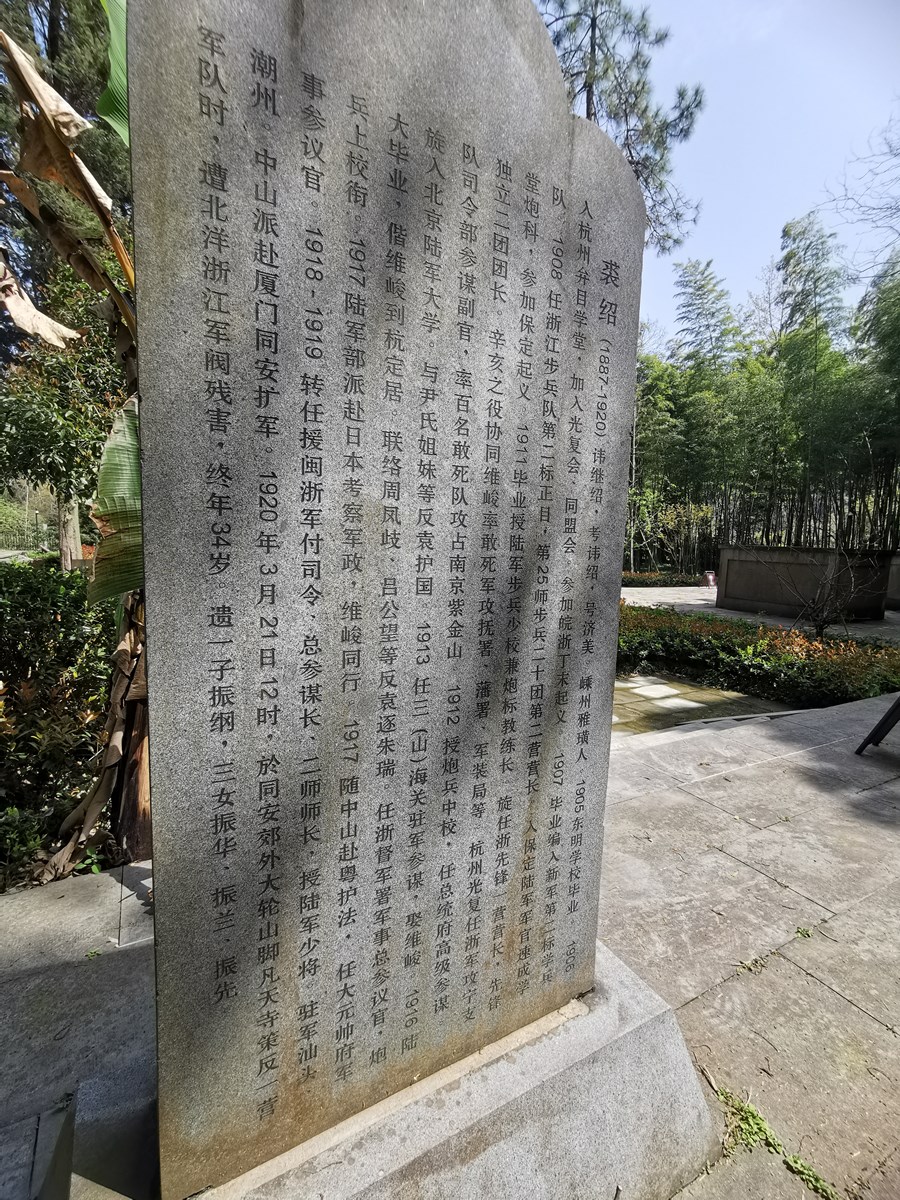 裘绍 (1887-1920) 讳继绍，考讳绍，号济美。嵊州雅璜人 1905东明学校毕业 1906
入杭州弁目学堂，加入光复会、同盟会。参加皖浙丁未起义 1907 毕业编入新军第二标学兵
队。1908 任浙江步兵队第二标正目，第25师步兵二十团第二营营长，入保定陆军军官速成学
堂炮科，参加保定起义。1911毕业授陆军步兵少校兼炮标教练长 旋任浙先锋 营营长，先锋
独立二团团长。辛亥之役协同维峻率敢死军攻抚署、藩署、军装局等 杭州光复任浙军攻宁支
队司令部参谋副官，率百名敢死队攻占南京紫金山 1912 授炮兵中校，任总统府高级参谋
旋入北京陆军大学。与尹氏姐妹等反袁护国 1913 任三(山)海关驻军参谋，娶维峻 1916 陆
大毕业，偕维峻到杭定居。联络周凤歧、吕公望等反袁逐朱瑞。任浙督军署军事总参议官，炮
兵上校衔。1917 陆军部派赴日本考察军政，维峻同行 1917 随中山赴粤护法，任大元帅府军
事参议官。1918-1919 转任援闽浙军付司令、总参谋长、二师师长，授陆军少将。驻军汕头
潮州。中山派赴厦门同安扩军。1920 年 3 月 21 日 12 时，於同安郊外大轮山脚凡天寺策反一营
军队时，遭北洋浙江军阀残害，终年34岁。遗一子振纲，三女振华、振兰、振先